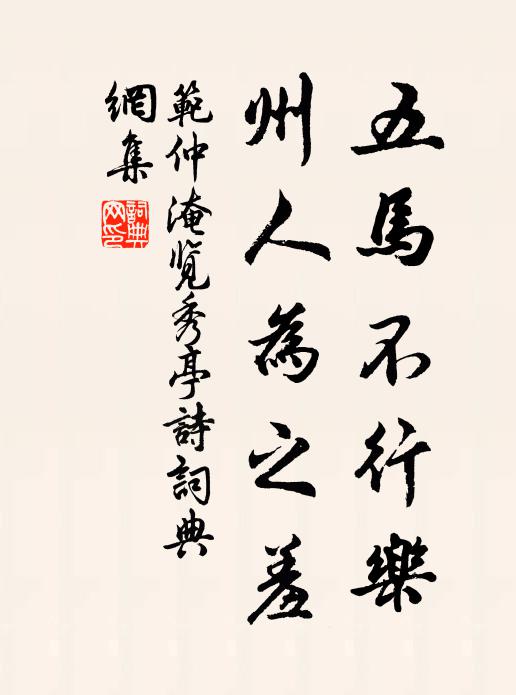 五馬不行樂
州人為之羞
範仲淹览秀亭詩詞典
網集
詞典
网印